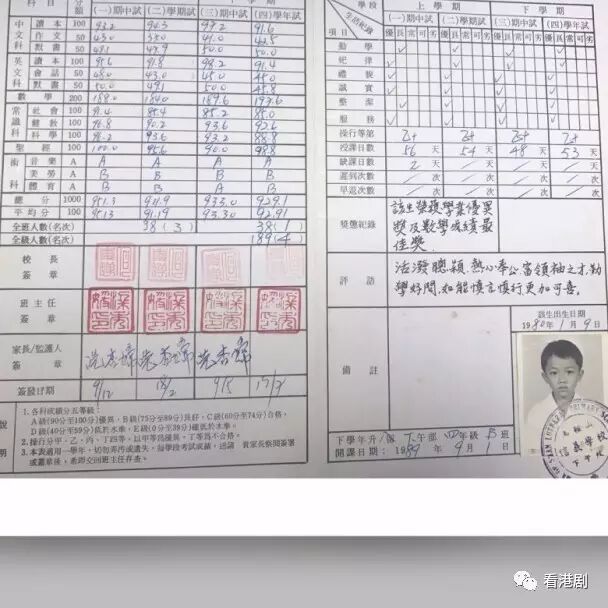 科目 分額 上學期 下學期
(一)期中試 (二)學期試 (三)期中試 (四)學年試
中文科 讀本 100 93.2 94.3 91.6
作文 50 43.0 38.0 41.0 42.5
默書 50 49.1 49.9 50.0 50.0
英文科 讀本 100 95.6 91.8 98.2 91.4
會話 50 48.0 43.0 45.0 45.0
默書 50 50.0 49.1 50.0 45.8
數學 200 188.0 184.0 189.6 193.6
常識科 社會 100 91.4 85.4 85.2 85.0
健教 100 90.2 93.6 92.6
科學 100 93.6 93.2 88.8
聖經 100 100.0 95.6 90.0 98.8
術科 音樂 A A A A A
美勞 A B B B B
體育 A B B A B
總分 1000 951.3 911.9 933.0 929.1
平均分 100 95.13 91.19 93.30 92.91
全班人數(名次) 38 (3) 38 (1)
全級人數(名次) 189 (4)
校長簽章
班主任簽章
家長/監護人簽章
簽發日期 9/12
說明
1. 各科成績分五等級:
A級(90分至100分)優異,B級(75分至89分)良好,C級(60分至74分)合格,
D級(40分至59分)稍低於水準,E級(0分至39分)確低於水準。
2. 操行分甲、乙、丙、丁四等,以甲等為優異,丁等為不合格。
3. 本表適用一學年,切勿弄污或遺失,每學段考試成績,送請貴家長察閱簽署
或蓋章後,希即交回班主任存查。
學段 上學期 下學期
生活紀錄 (一)期中試 (二)學期試 (三)期中試 (四)學年試
項目 優良常可劣 優良常可劣 優良常可劣 優良常可劣
勤學
紀律
禮貌
誠實
整潔
服務
操行等第 乙+ 乙+ 乙+ 乙+
授課日數 56天 54天 48天 53天
缺課日數 / 天 2 天 / 天 / 天
遲到次數 / 次 / 次 / 次 / 次
早退次數 / 次 / 次 / 次 / 次
獎懲紀錄 該生榮獲學業優異
獎及數學成績最
佳獎。
評語 活潑聰穎,熱心奉公,富領袖之才,勤
學好問,如能慎言慎行更加可喜。
備註
該生出生日期
1980年1月9日
下學年升/留 下午部 四年級 B班
開課日期:1989年9月1日
信義學校
下午校
看港剧